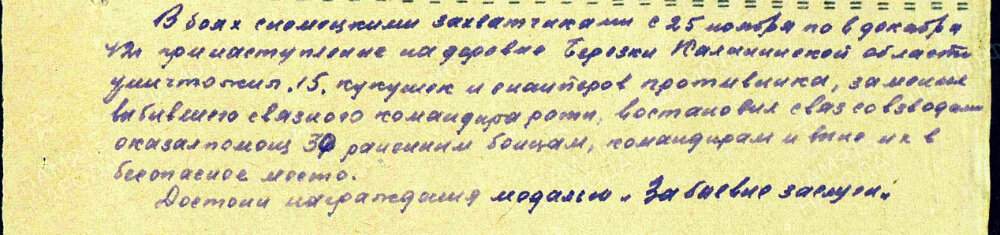 В боях с немецкими захватчиками с 25 ноября по 8 декабря
42г при наступление на деревню Березки Калининской области
уничтожил 15 кукушек и снайперов противника, заменил
выбившего связного командира роты, востановил связ со взводами
оказал помощ 30 раненным бойцам, командирам и вынес их в
безопасное место.
Достоин награждения медалью „За баевые заслуги“.